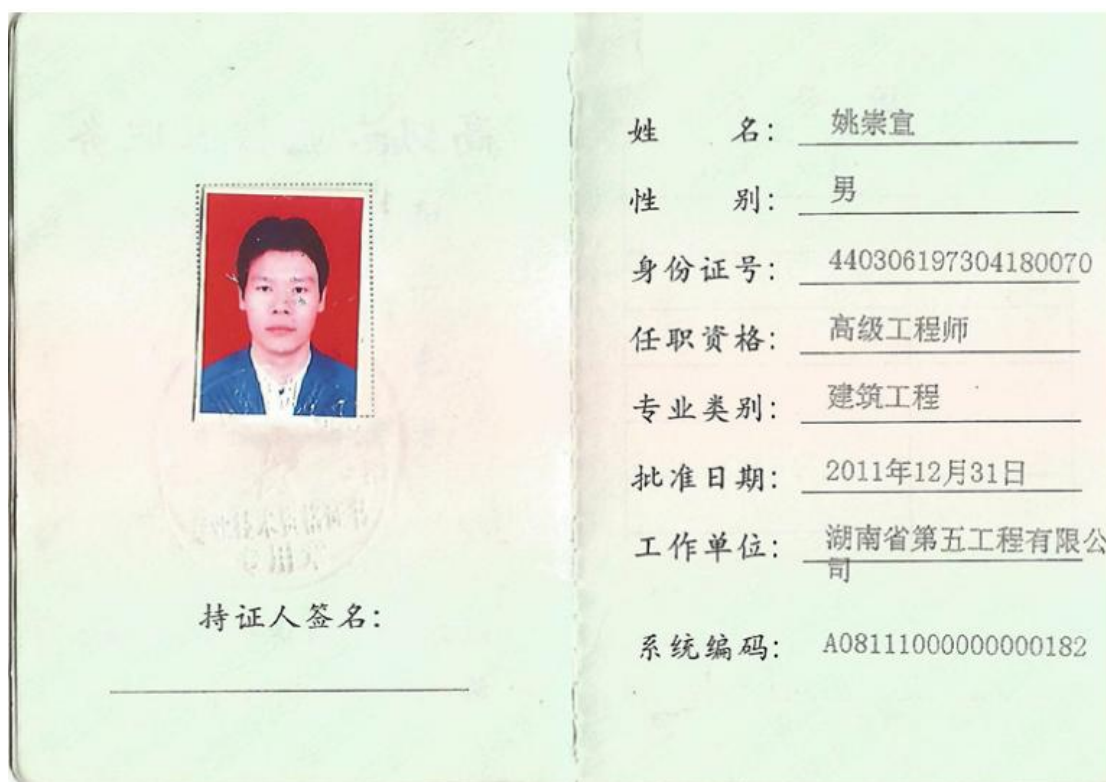 持证人签名：
姓 名： 姚崇宜
性 别： 男
身份证号： 440306197304180070
任职资格： 高级工程师
专业类别： 建筑工程
批准日期： 2011年12月31日
工作单位： 湖南省第五工程有限公
司
系统编码： A08111000000000182